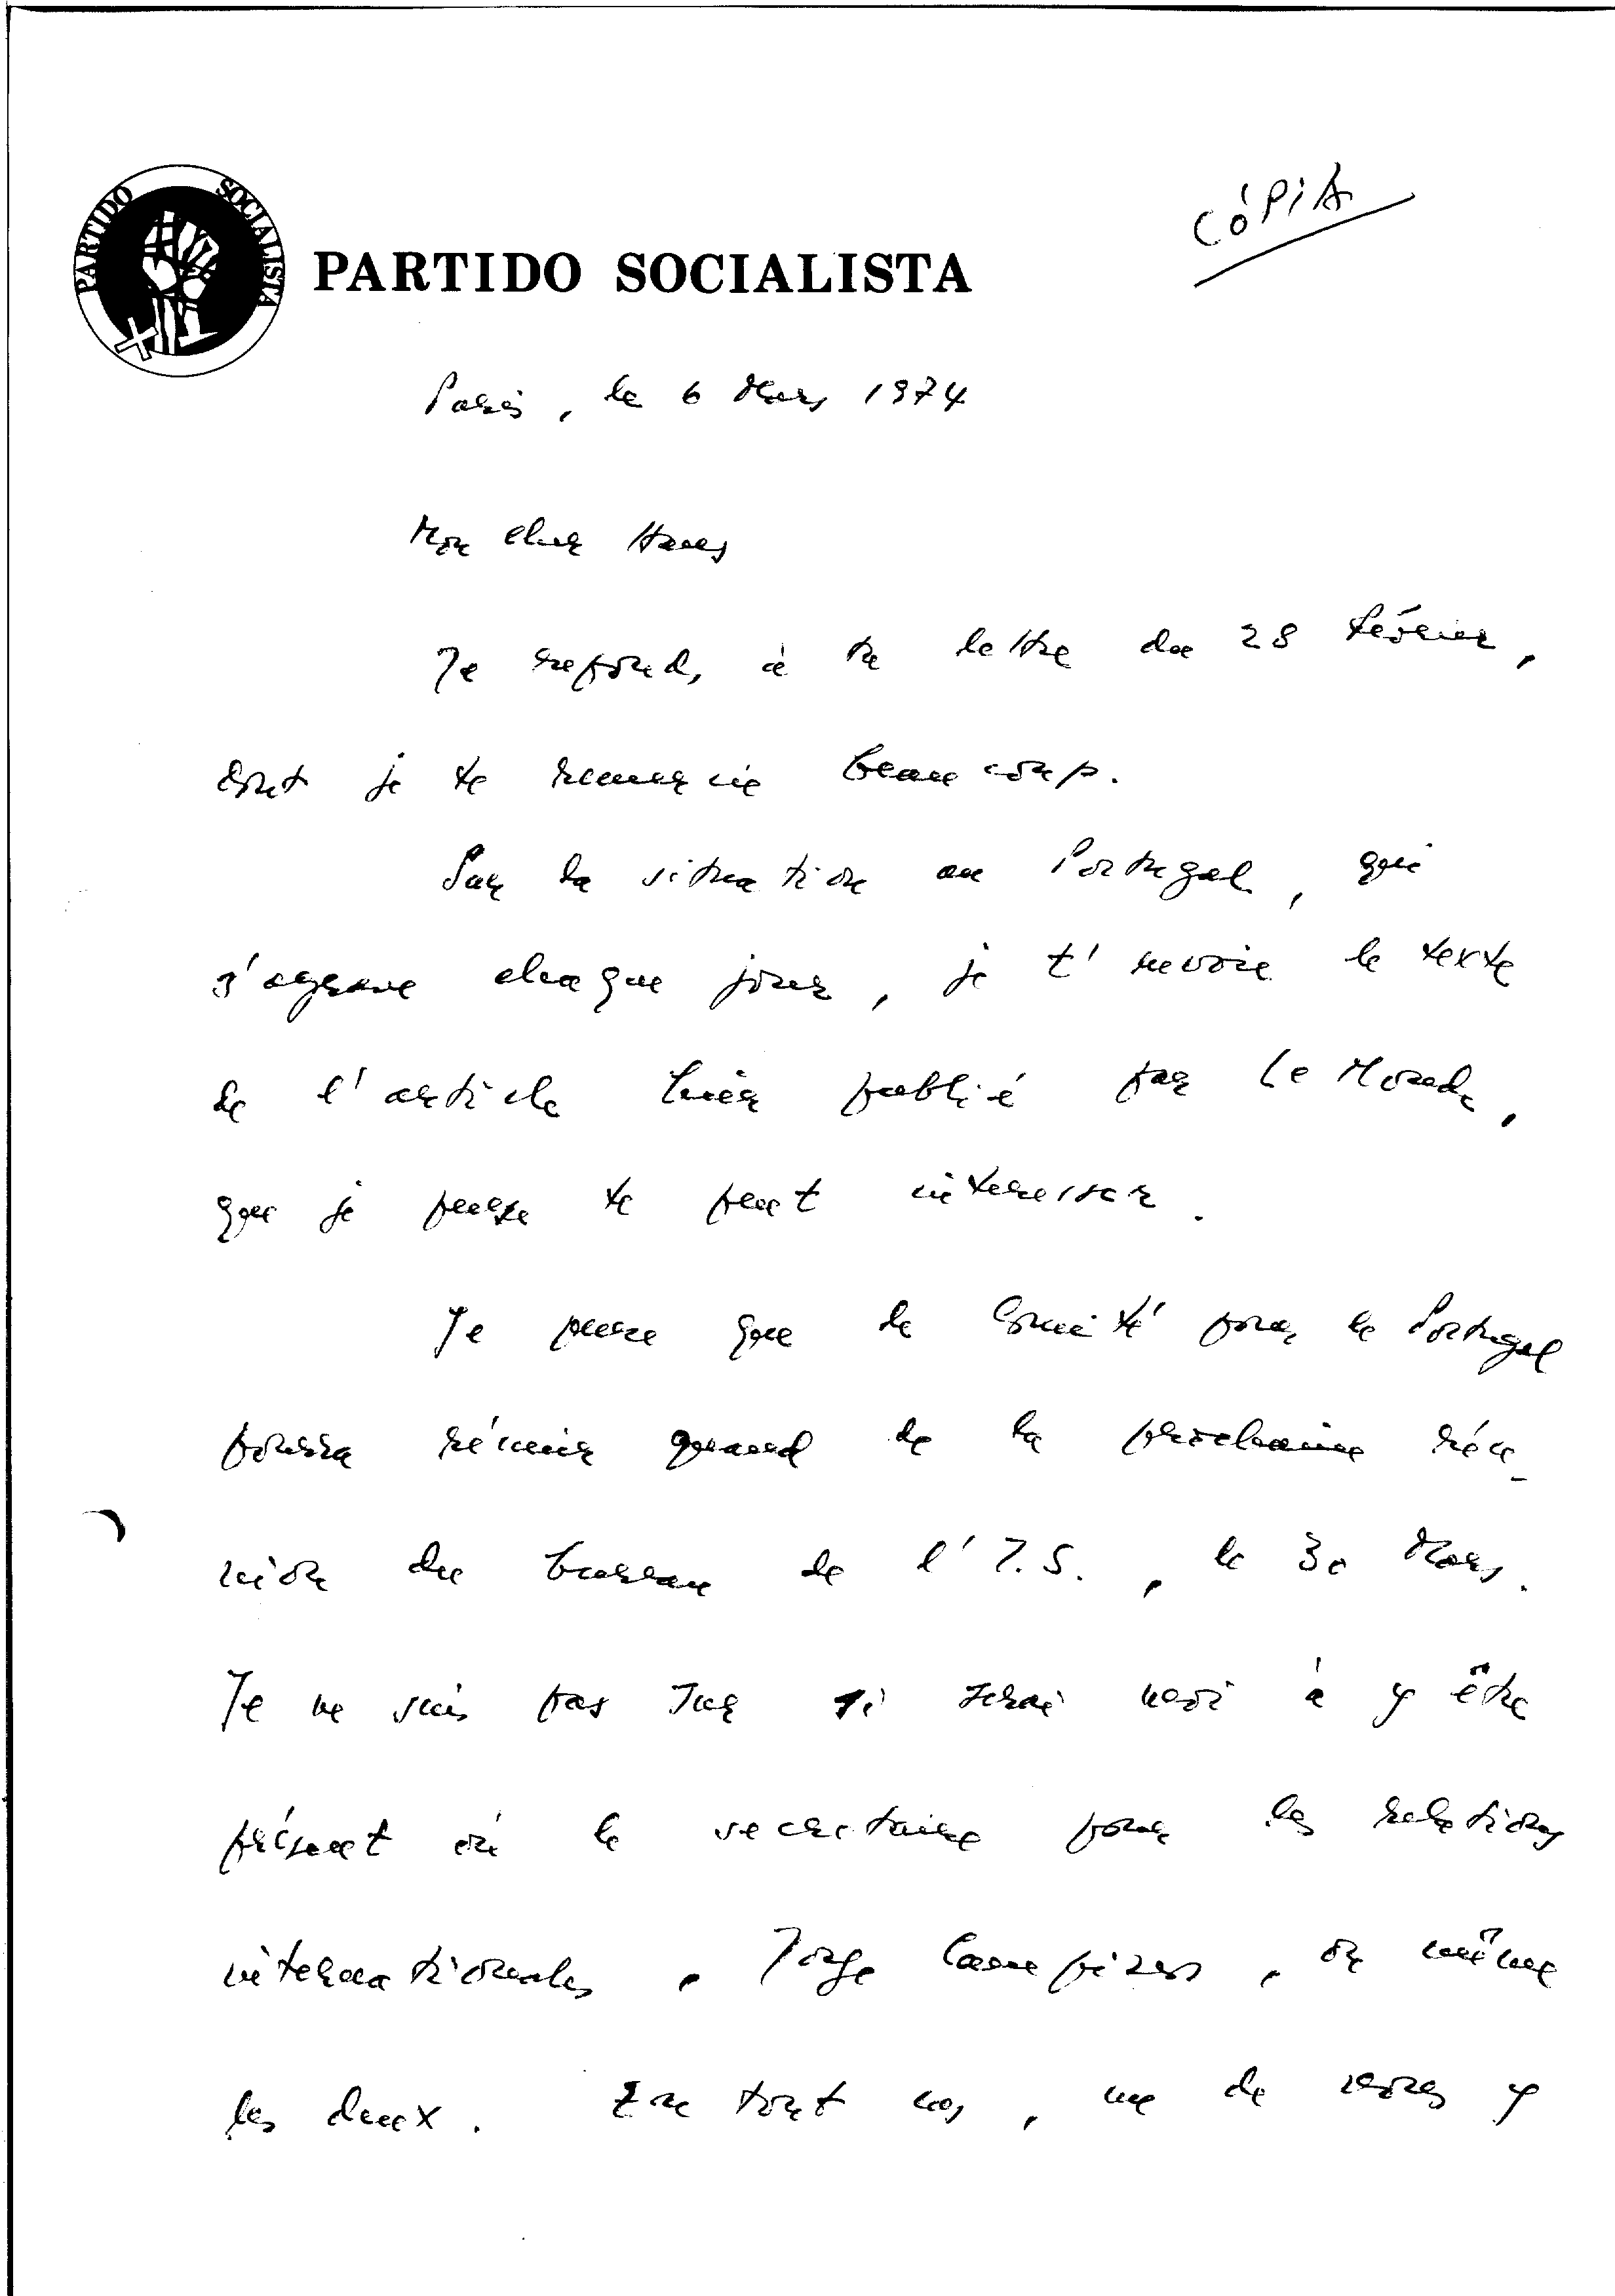 CÓPIA
PARTIDO SOCIALISTA
PARTIDO SOCIALISTA
Paris, le 6 Mars 1974
Mon cher Hans
Je repond, à ta lettre du 28 février,
dont je te remercie beaucoup.
Sur la situation au Portugal, qui
s'aggrave chaque jour, je t'envoie le texte
de l'article hier publié par Le Monde,
que je pense te peut interesser.
Je pense que le Comité pour le Portugal
pourra réunir quand de la prochaine réu-
nion du bureau de l'I.S., le 30 Mars.
Je ne suis pas sur si serai moi à y être
présent où le secretaire pour les relations
internationales, Jorge Campinos, ou même
les deux. En tout cas, un de nous y